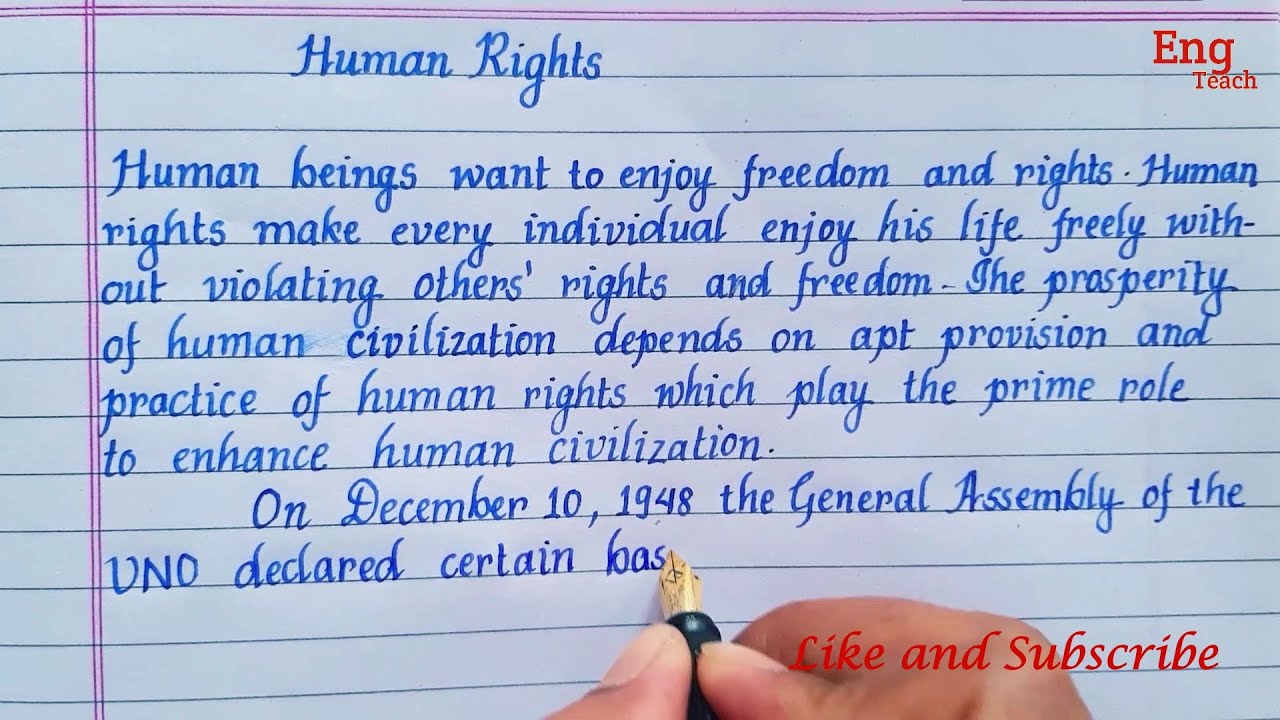 Human Rights
Eng
Teach
Human beings want to enjoy freedom and rights. Human
rights make every individual enjoy his life freely with-
out violating others' rights and freedom. The prosperity
of human civilization depends on apt provision and
practice of human rights which play the prime role
to enhance human civilization.
On December 10, 1948 the General Assembly of the
UNO declared certain bas
Like and Subscribe